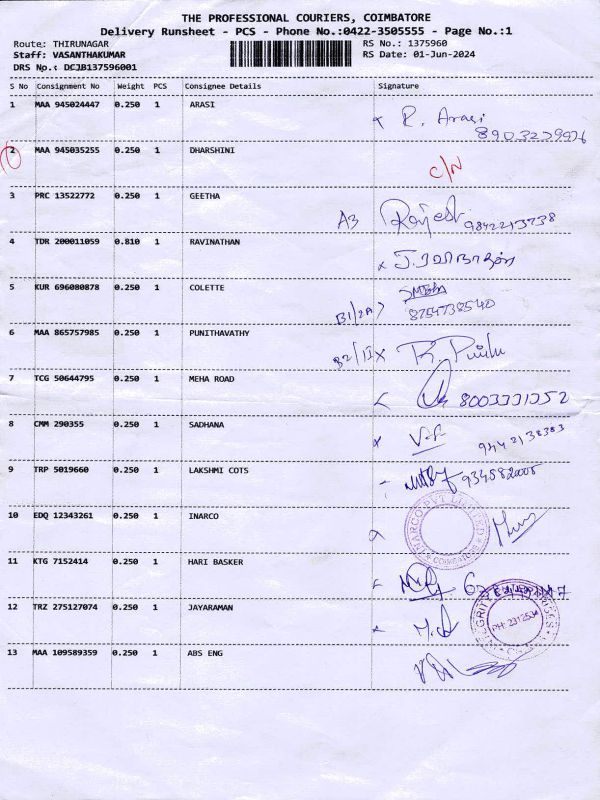 THE PROFESSIONAL COURIERS, COIMBATORE
Delivery Runsheet - PCS - Phone No.:0422-3505555 - Page No.:1
Route: THIRUNAGAR RS No.: 1375960
Staff: VASANTHAKUMAR RS Date: 01-Jun-2024
DRS No.: DCJB137596001
S No Consignment No Weight PCS Consignee Details Signature
1 MAA 945024447 0.250 1 ARASI R. Arasi
2 MAA 945035255 0.250 1 DHARSHINI C/N
3 PRC 13522772 0.250 1 GEETHA A3 Rajesh 9842213738
4 TDR 200011059 0.810 1 RAVINATHAN
5 KUR 696080878 0.250 1 COLETTE 8754738540
6 MAA 865757985 0.250 1 PUNITHAVATHY
7 TCG 50644795 0.250 1 MEHA ROAD
8 CMM 290355 0.250 1 SADHANA 9442138383
9 TRP 5019660 0.250 1 LAKSHMI COTS
10 EDQ 12343261 0.250 1 INARCO INARCO PVT LIMITED COIMBATORE
11 KTG 7152414 0.250 1 HARI BASKER
12 TRZ 275127074 0.250 1 JAYARAMAN
13 MAA 109589359 0.250 1 ABS ENG